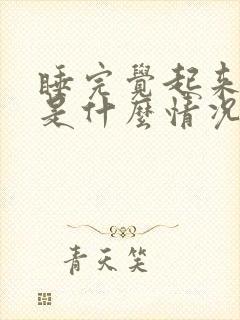 睡完覺起來
是什麼情況
青天笑